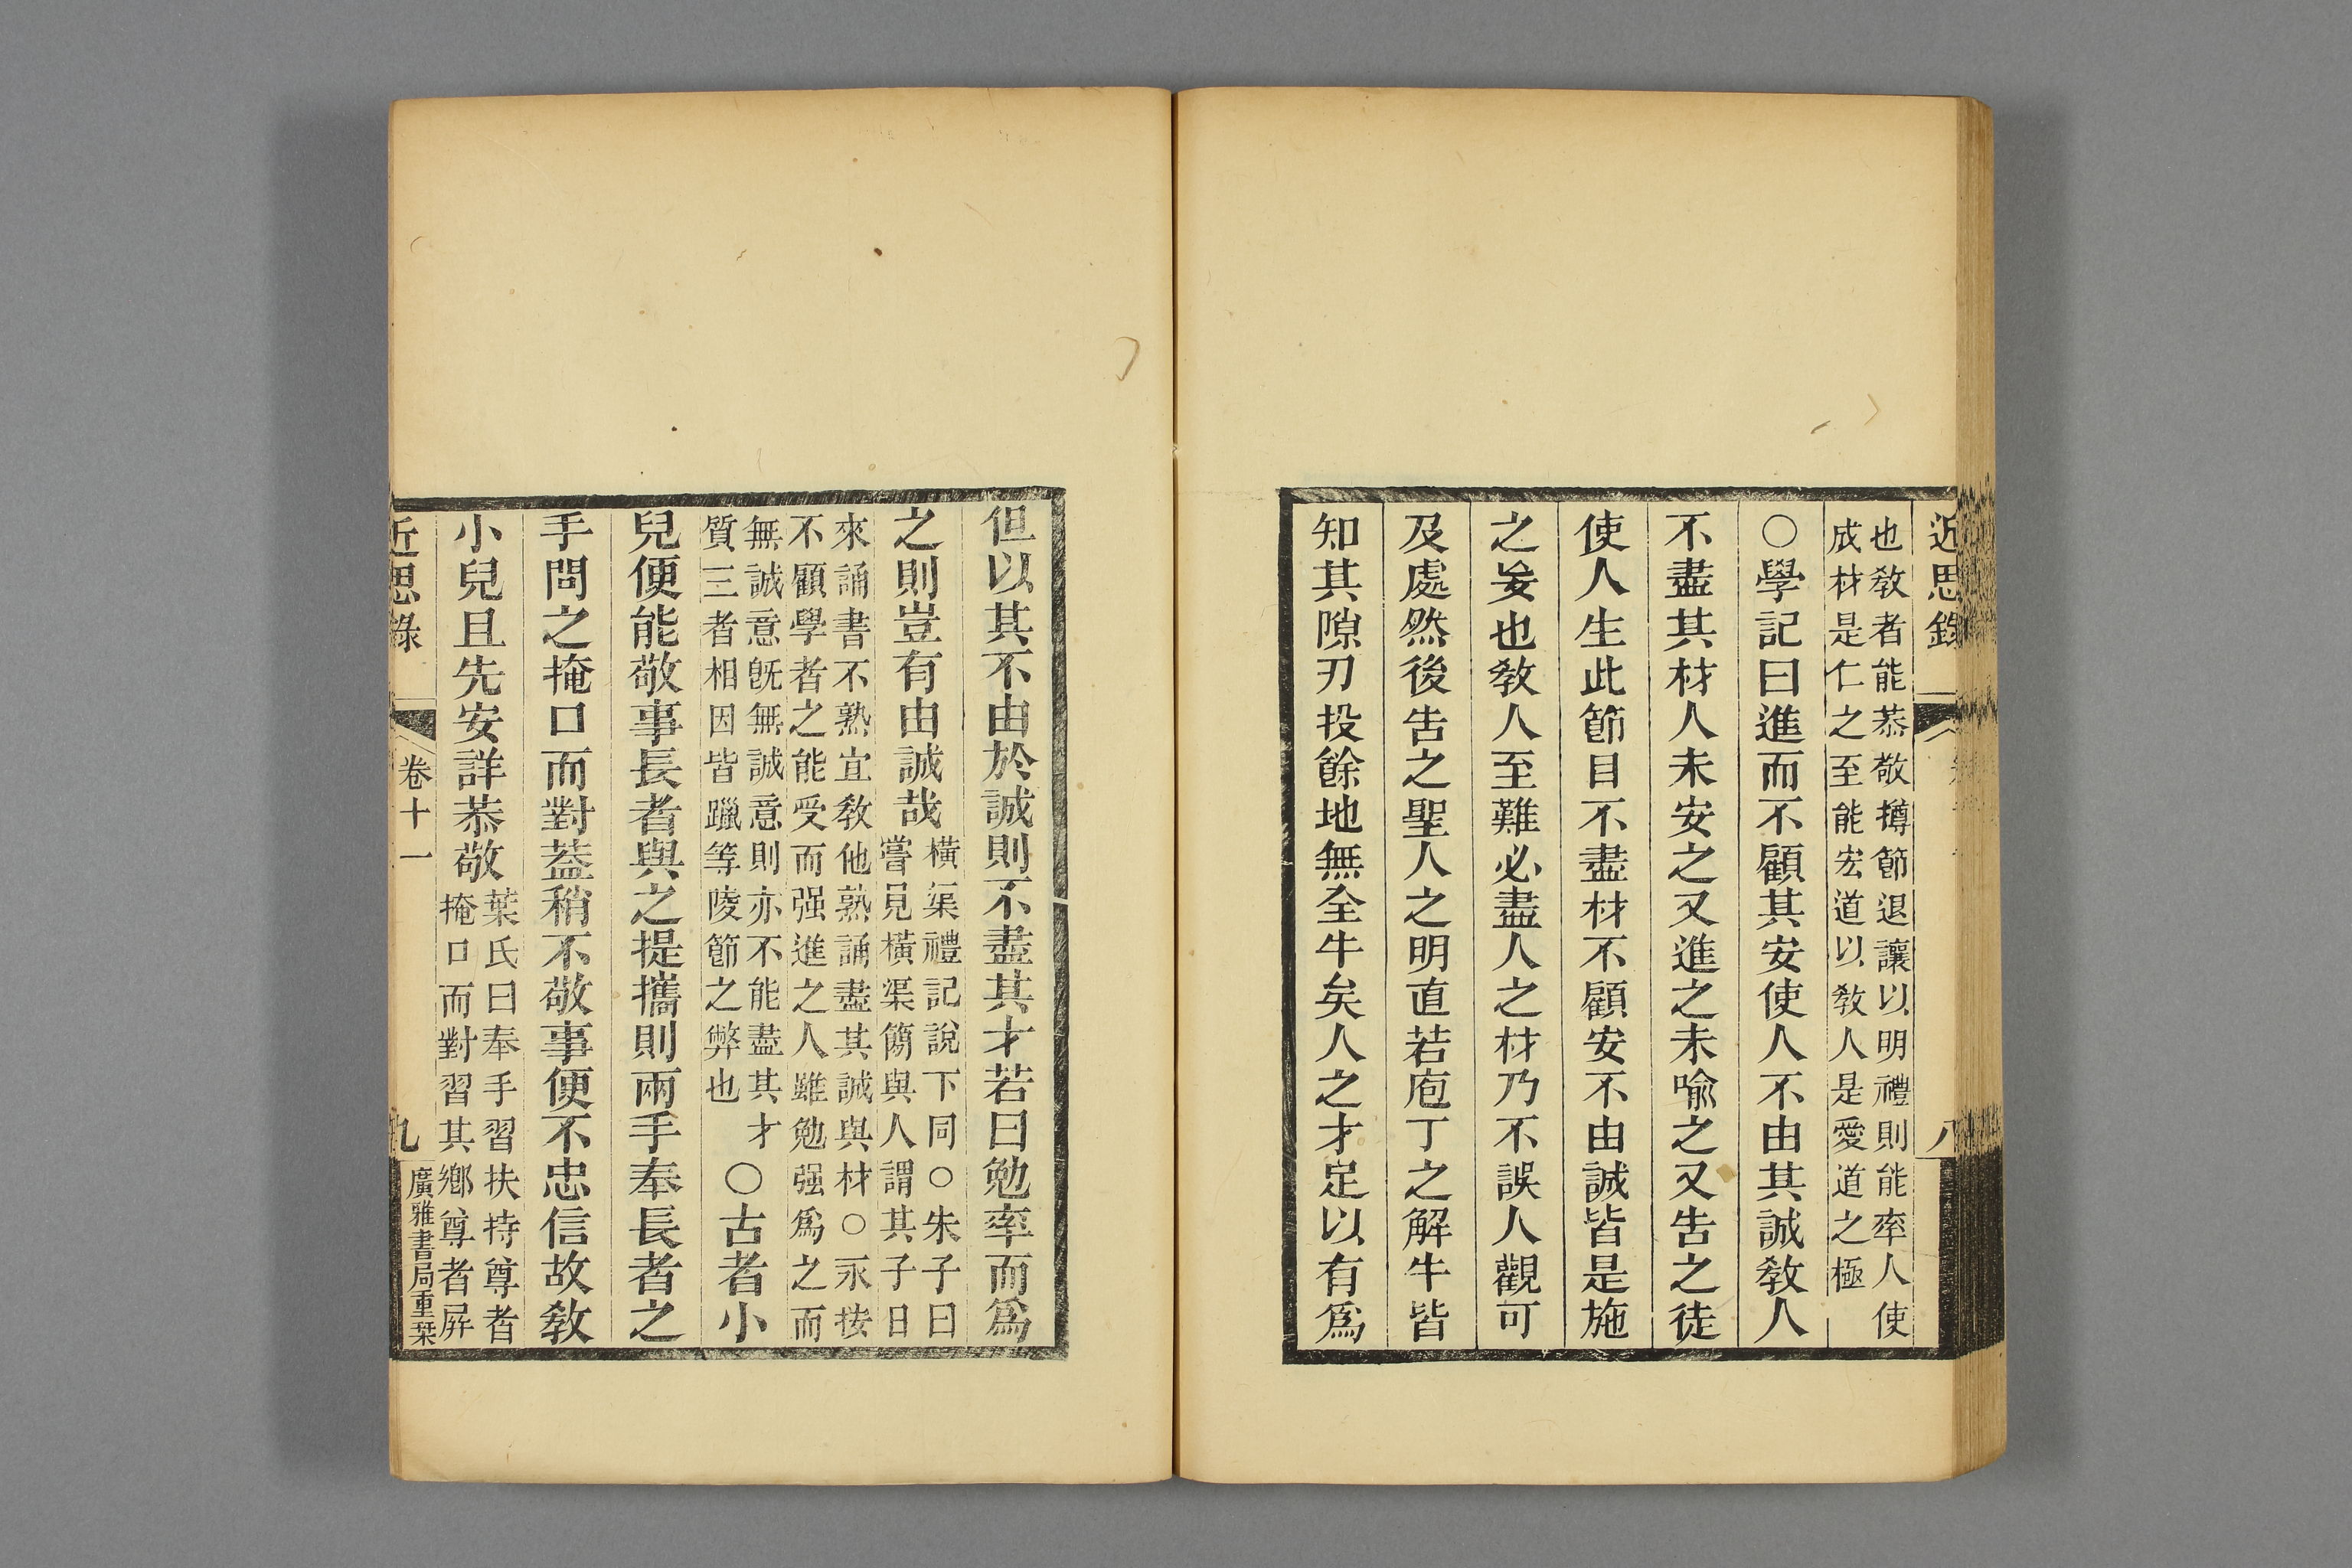 近思錄
八
也教者能恭敬撙節退讓以明禮則能率人使
成材是仁之至能宏道以教人是愛道之極
○學記曰進而不顧其安使人不由其誠教人
不盡其材人未安之又進之未喻之又告之徒
使人生此節目不盡材不顧安不由誠皆是施
之妄也教人至難必盡人之材乃不誤人觀可
及處然後告之聖人之明直若庖丁之解牛皆
知其隙刃投餘地無全牛矣人之才足以有爲
但以其不由於誠則不盡其才若曰勉率而爲
之則豈有由誠哉
橫渠禮記說下同○朱子曰
嘗見橫渠簡與人謂其子日
來誦書不熟宜教他熟誦盡其誠與材○永按
不顧學者之能受而强進之人雖勉强爲之而
無誠意旣無誠意則亦不能盡其才
質三者相因皆躐等陵節之弊也
○古者小
兒便能敬事長者與之提攜則兩手奉長者之
手問之掩口而對蓋稍不敬事便不忠信故教
小兒且先安詳恭敬
葉氏曰奉手習扶持尊者
掩口而對習其鄉尊者屛
近思錄
卷十一
九
廣雅書局重栞